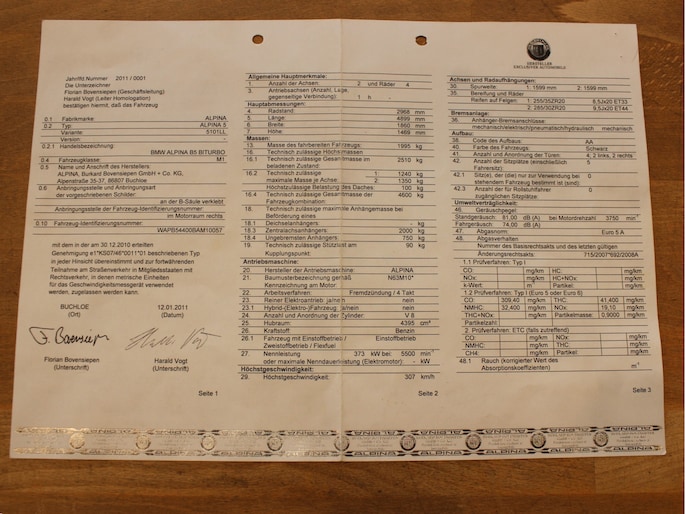 Jahr/lfd Nummer 2011 / 0001
Die Unterzeichner
Florian Bovensiepen (Geschäftsleitung)
Harald Vogt (Leiter Homologation)
bestätigen hiermit, daß das Fahrzeug
0.1 Fabrikmarke ALPINA
0.2 Typ ALPINA 5
Variante 5101LL
Version -
0.2.1 Handelsbezeichnung
BMW ALPINA B5 BITURBO
0.4 Fahrzeugklasse M1
0.5 Name und Anschrift des Herstellers:
ALPINA, Burkard Bovensiepen GmbH + Co. KG,
Alpenstraße 35-37, 86807 Buchloe
0.6 Anbringungsstelle und Anbringungsart
der vorgeschriebenen Schilder:
an der B-Säule verklebt
Anbringungsstelle der Fahrzeug-Identifizierungsnummer:
im Motorraum rechts
0.10 Fahrzeug-Identifizierungsnummer:
WAPB54400BAM10057
mit dem in der am 30.12.2010 erteilten
Genehmigung e1*KS07/46*0011*01 beschriebenen Typ
in jeder Hinsicht übereinstimmt und zur fortwährenden
Teilnahme am Straßenverkehr in Mitgliedstaaten mit
Rechtsverkehr, in denen metrische Einheiten
für das Geschwindigkeitsmessgerät verwendet
werden, zugelassen werden kann.
BUCHLOE 12.01.2011
(Ort) (Datum)
Florian Bovensiepen Harald Vogt
(Unterschrift) (Unterschrift)
Seite 1
Allgemeine Hauptmerkmale:
1. Anzahl der Achsen: 2 und Räder 4
3. Antriebsachsen (Anzahl, Lage,
gegenseitige Verbindung): 1 h -
Hauptabmessungen:
4. Radstand: 2968 mm
5. Länge: 4899 mm
6. Breite: 1860 mm
7. Höhe: 1469 mm
Massen:
13. Masse des fahrbereiten Fahrzeugs: 1995 kg
16. Technisch zulässige Höchstmassen
16.1 Technisch zulässige Gesamtmasse im 2510 kg
beladenen Zustand:
16.2 Technisch zulässige 1: 1240 kg
maximale Masse je Achse 2: 1350 kg
Höchstzulässige Belastung des Daches 100 kg
16.4 Technisch zulässige Gesamtmasse der 4600 kg
Fahrzeugkombination:
18. Technisch zulässige maximale Anhängemasse bei
Beförderung eines
18.1 Deichselanhängers: - kg
18.3 Zentralachsanhängers: 2000 kg
18.4 Ungebremsten Anhängers: 750 kg
19. Technisch zulässige Stützlast am 90 kg
Kupplungspunkt:
Antriebsmaschine:
20 Hersteller der Antriebsmaschine: ALPINA
21. Baumusterbezeichnung gemäß N63M10*
Kennzeichnung am Motor
22. Arbeitsverfahren: Fremdzündung / 4 Takt
23. Reiner Elektroantrieb: ja/nein nein
23.1 Hybrid-(Elektro-)Fahrzeug: ja/nein nein
24. Anzahl und Anordnung der Zylinder V 8
25. Hubraum: 4395 cm³
26. Kraftstoff: Benzin
26.1 Fahrzeug mit Einstoffbetrieb / Einstoffbetrieb
Zweistoffbetrieb / Flexfuel
27. Nennleistung 373 kW bei 5500 min⁻¹
oder maximale Nenndauerleistung (Elektromotor): - kW
Höchstgeschwindigkeit:
29. Höchstgeschwindigkeit: 307 km/h
Seite 2
HERSTELLER
EXCLUSIVER AUTOMOBILE
Achsen und Radaufhängungen:
30. Spurweite: 1: 1599 mm 2: 1599 mm
35. Bereifung und Räder
Reifen auf Felgen: 1: 255/35ZR20 8,5Jx20 ET33
2: 285/30ZR20 9,5Jx20 ET44
Bremsanlage:
36. Anhänger-Bremsanschlüsse:
mechanisch/elektrisch/pneumatisch/hydraulisch mechanisch
Aufbau:
38. Code des Aufbaus: AA
40. Farbe des Fahrzeugs: Schwarz
41. Anzahl und Anordnung der Türen: 4; 2 links, 2 rechts
42. Anzahl der Sitzplätze (einschließlich 5
Fahrersitz):
42.1 Sitz(e), der (die) nur zur Verwendung bei 0
stehendem Fahrzeug bestimmt ist (sind):
42.3 Anzahl der für Rollstuhlfahrer 0
zugänglichen Sitzplätze:
Umweltverträglichkeit:
46. Geräuschpegel
Standgeräusch: 81,00 dB (A) bei Motordrehzahl 3750 min⁻¹
Fahrgeräusch: 74,00 dB (A)
47. Abgasnorm: Euro 5 A
48. Abgasverhalten
Nummer des Basisrechtsakts und des letzten gültigen
Änderungsrechtsakts: 715/2007*692/2008A
1.1 Prüfverfahren: Typ I
CO: mg/km HC: mg/km
NOx: mg/km HC+NOx: mg/km
k-Wert: m⁻¹ Partikel: mg/km
1.2 Prüfverfahren: Typ I (Euro 5 oder Euro 6)
CO: 309,40 mg/km THC: 41,400 mg/km
NMHC: 32,400 mg/km NOx: 19,10 mg/km
THC+NOx: mg/km Partikelmasse: 0,9000 mg/km
Partikelzahl:
2 Prüfverfahren: ETC (falls zutreffend)
CO: mg/km NOx: mg/km
NMHC: mg/km THC: mg/km
CH4: mg/km Partikel: mg/km
48.1 Rauch (korrigierter Wert des m⁻¹
Absorptionskoeffizienten)
Seite 3
ALPINA ALPINA ALPINA ALPINA ALPINA ALPINA